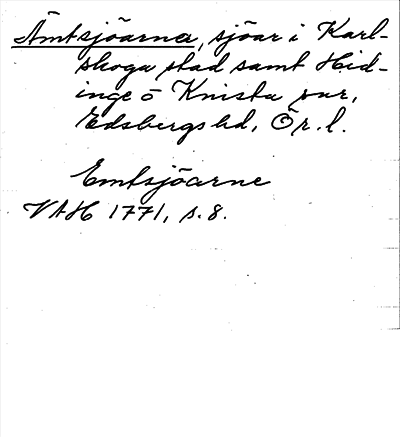 Ämtsjöarna, sjöar i Karl-
skoga stad samt Hid-
inge o Knista snr,
Edsbergs hd, Ör. l.
Emtsjöarne
VAH 1771, s. 8.